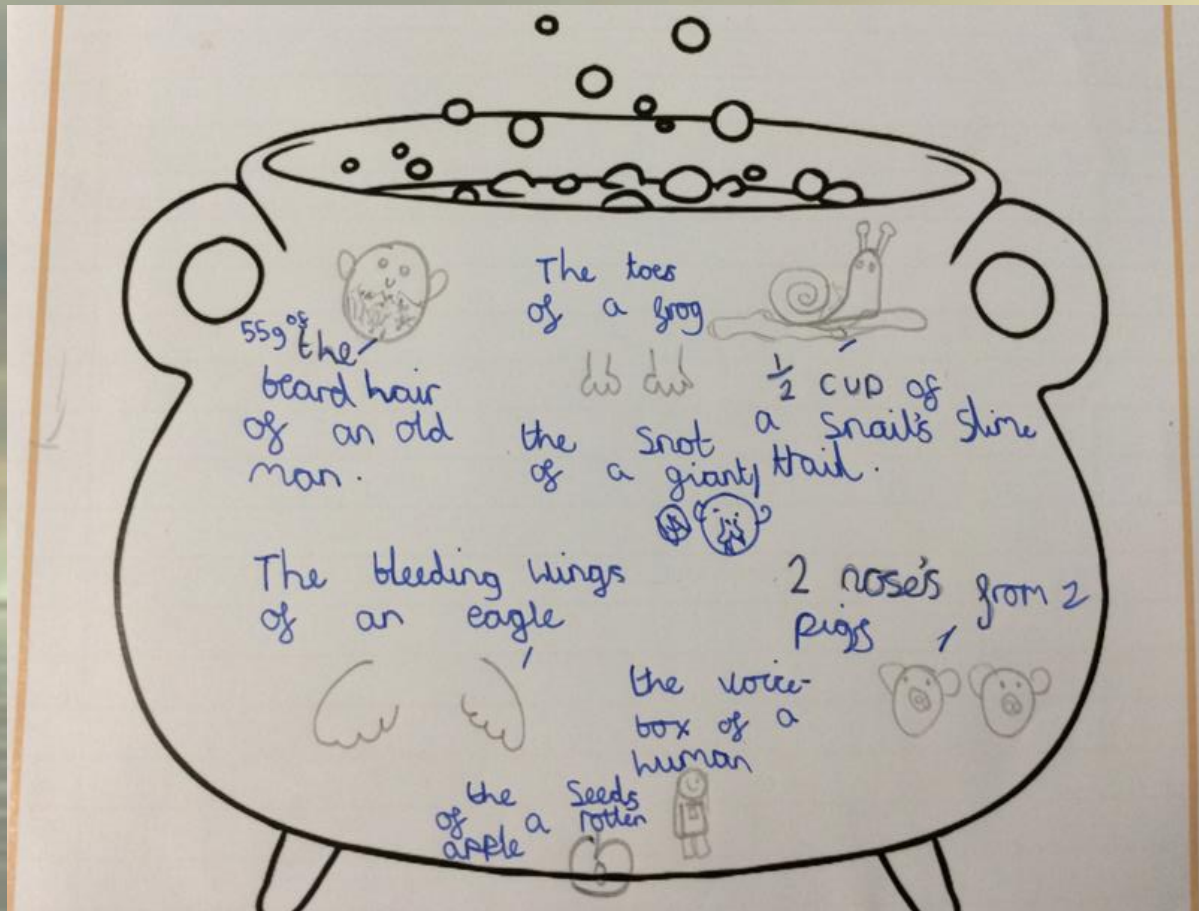 55g of the
beard hair
of an old
man.
The toes
of a frog
1/2 cup of
a Snail's Slime
trail.
the Snot
of a giant
The bleeding wings
of an eagle
2 nose's from 2
pigs
the voice-
box of a
human
the Seeds
of a rotten
apple